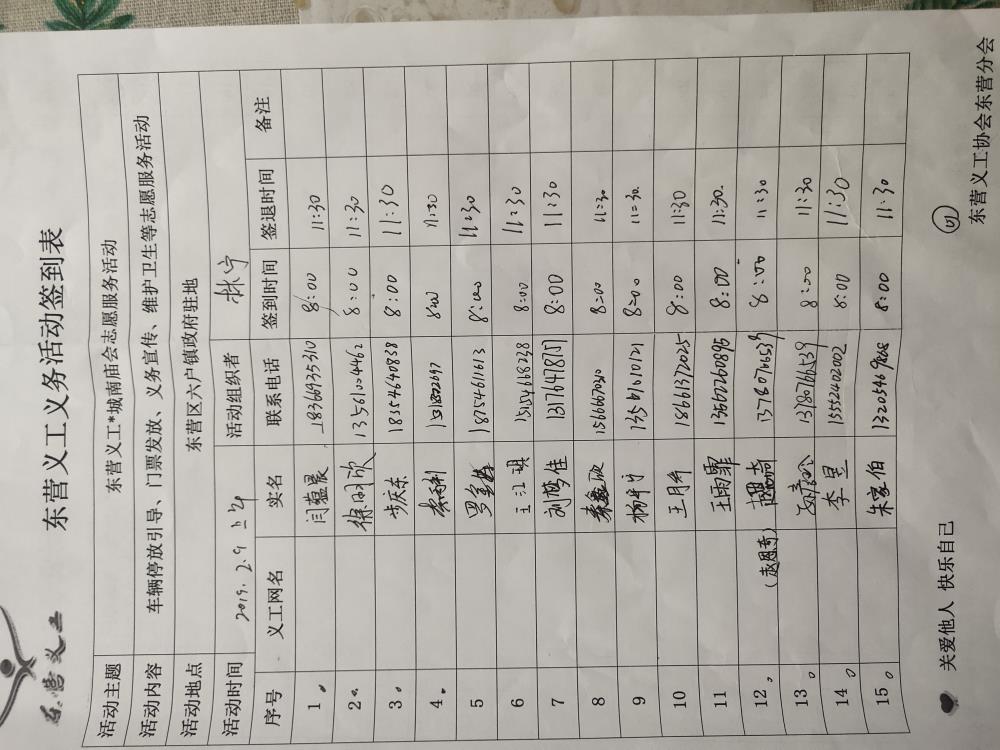 东营义工
东营义工义务活动签到表
活动主题 东营义工*城南庙会志愿服务活动
活动内容 车辆停放引导、门票发放、义务宣传、维护卫生等志愿服务活动
活动地点 东营区六户镇政府驻地
活动时间 2019.2.9 上午 活动组织者 林宁
序号 义工网名 实名 联系电话 签到时间 签退时间 备注
1 闫蕴晨 18369935310 8:00 11:30
2 徐明欣 13561004462 8:00 11:30
3 步庆东 18354640838 8:00 11:30
4 8:00 11:30
5 18754611613 8:00 11:30
6 王江琪 15154668238 8:00 11:30
7 刘梦佳 13176478751 8:00 11:30
8 秦鑫欣 8:00 11:30
9 杨中宁 13561610121 8:00 11:30
10 王月乔 18661372025 8:00 11:30
11 王雨霏 13562260895 8:00 11:30
12 (赵恩奇) 13780766539 8:00 11:30
13 13780766539 8:00 11:30
14 李昱 15552402002 8:00 11:30
15 朱家伯 8:00 11:30
关爱他人 快乐自己
东营义工协会东营分会